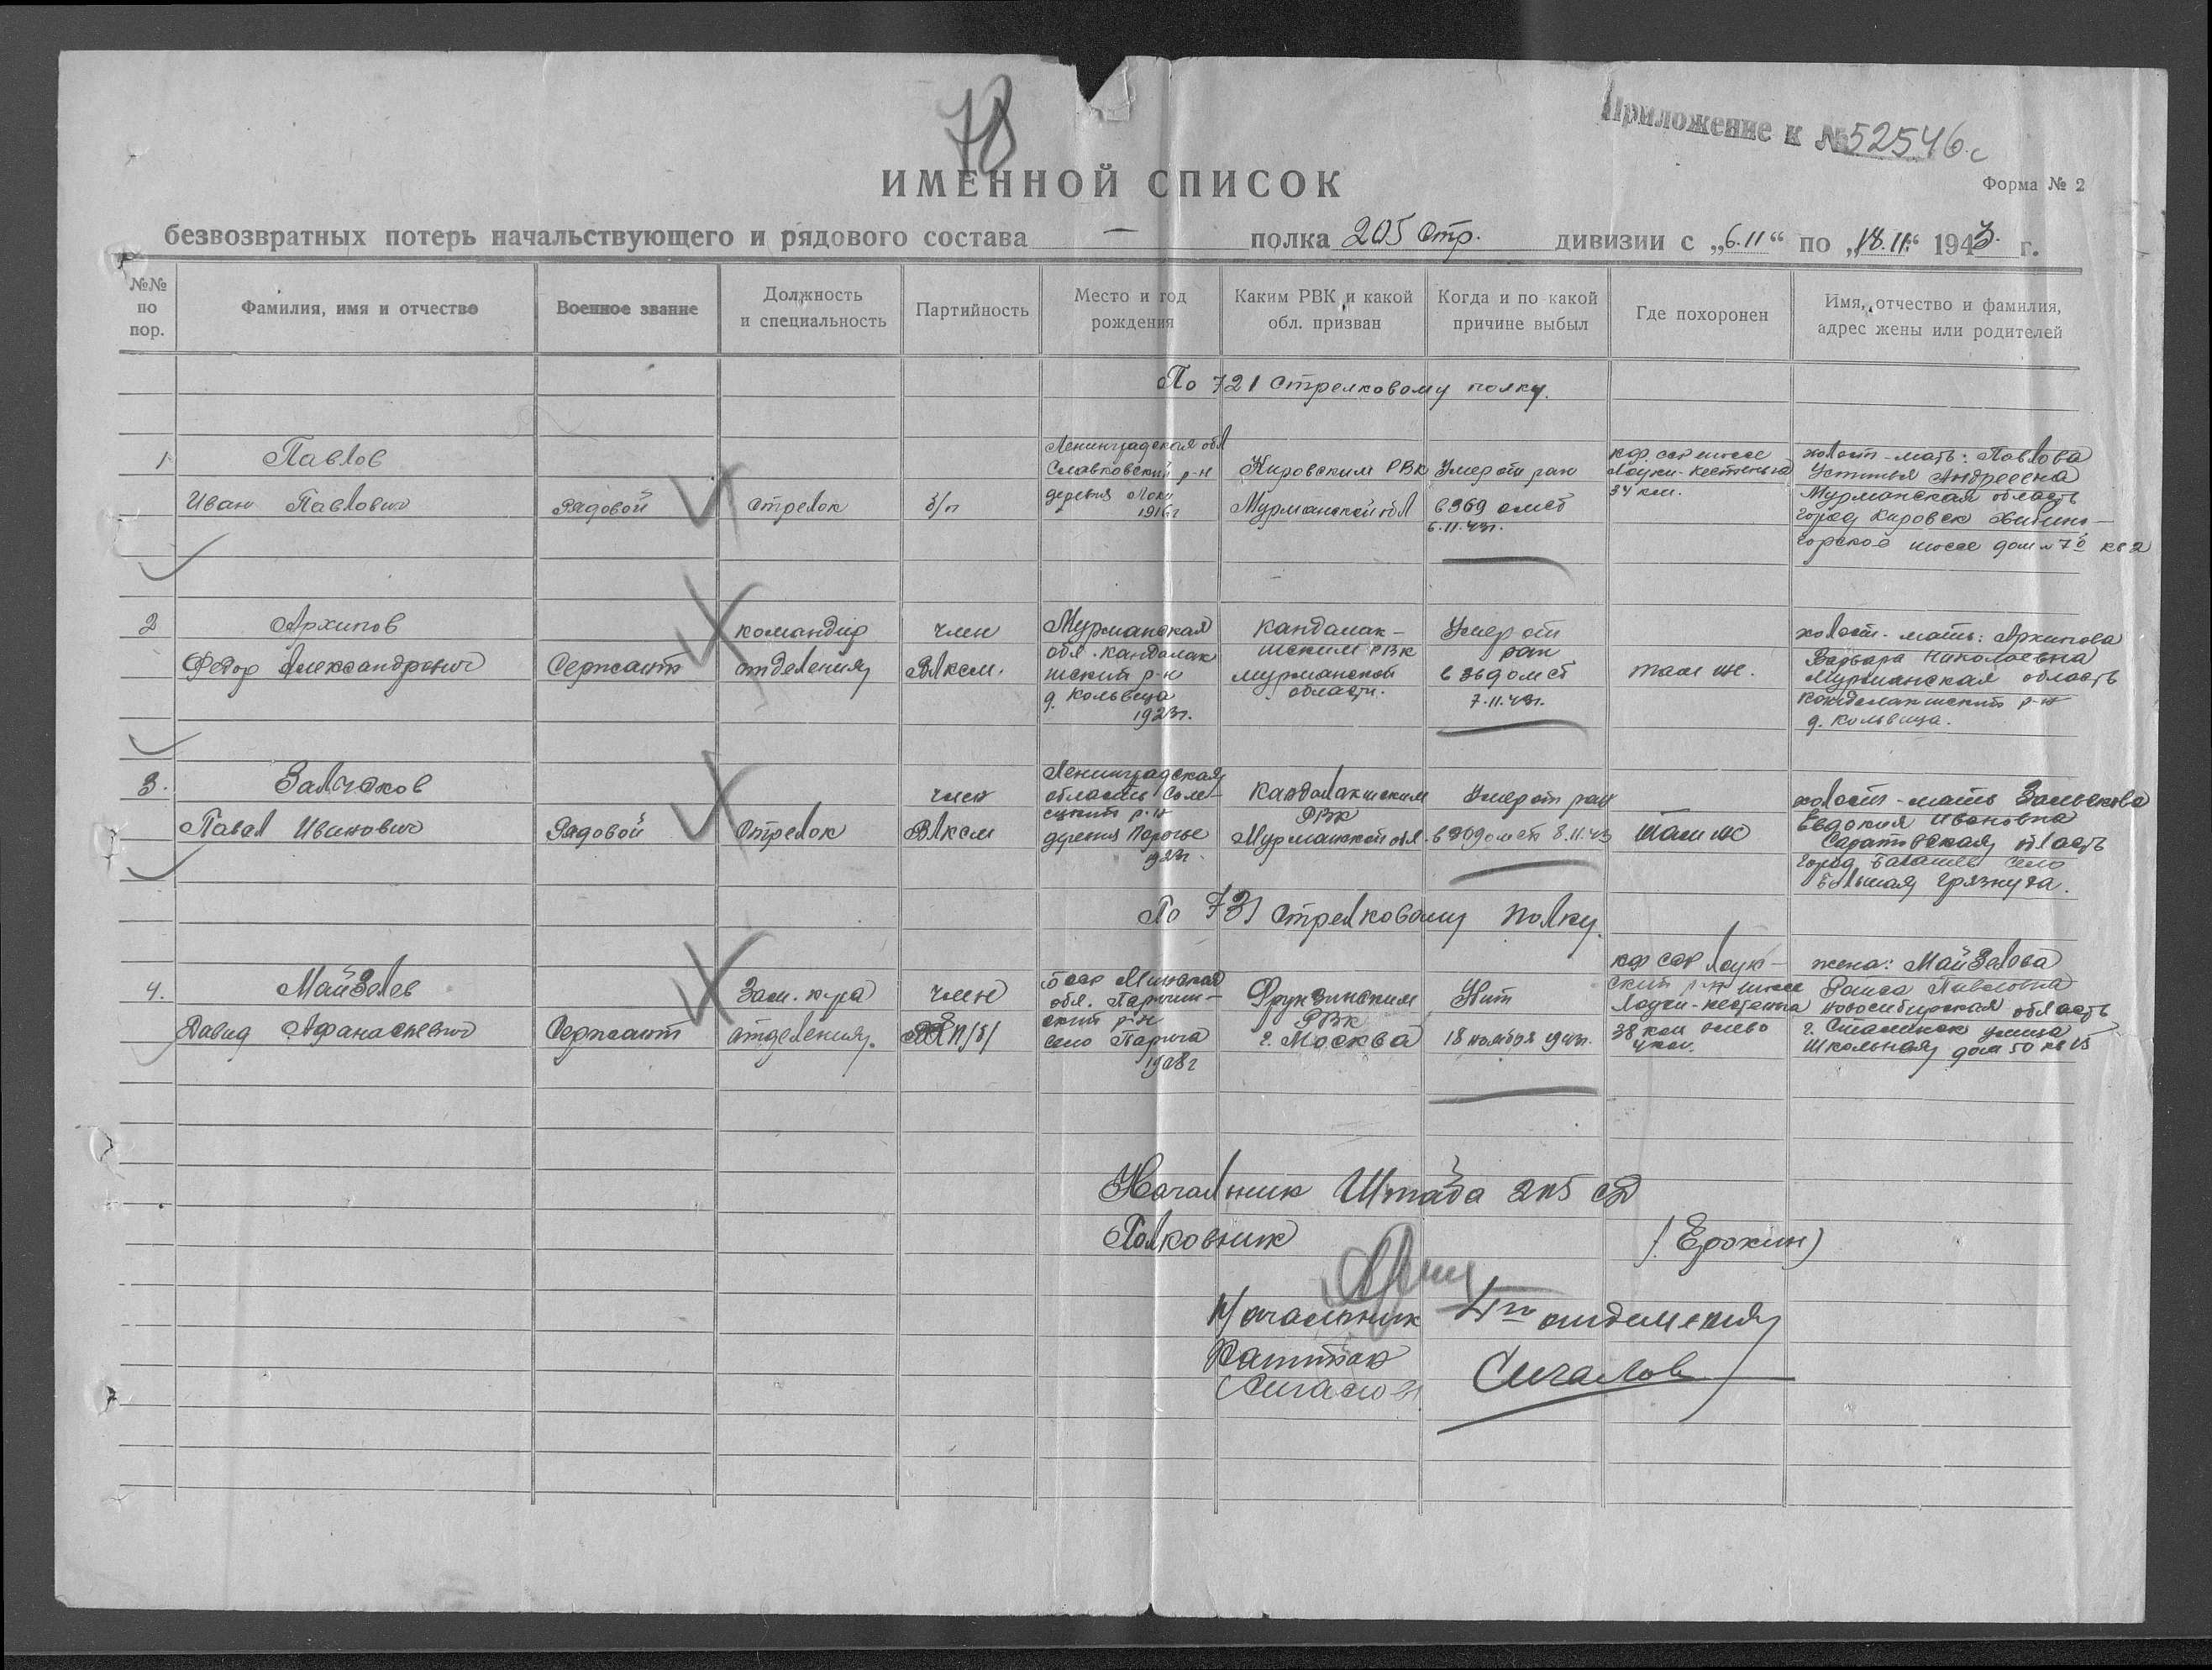 78
Приложение к № 52546с
ИМЕННОЙ СПИСОК
Форма № 2
безвозвратных потерь начальствующего и рядового состава — полка 205 стр. дивизии с „6.11“ по „18.11.“ 1943 г.
№№ по пор.
Фамилия, имя и отчество
Военное звание
Должность и специальность
Партийность
Место и год рождения
Каким РВК и какой обл. призван
Когда и по какой причине выбыл
Где похоронен
Имя, отчество и фамилия, адрес жены или родителей
По 721 Стрелковому полку.
1
Павлов
Иван Павлович
Рядовой
Стрелок
б/п
Ленинградская обл
Славковский р-н
деревня
1916г
Кировским РВК
Мурманской обл
Умер от ран
в 369 омсб
6.11.43г.
кф. сср шоссе
Лоухи-Кестеньга
34 км.
холост-мать: Павлова
Устинья Андреевна
Мурманская область
город Кировск Хибино-
горское шоссе дом № 70 кв 2
2
Архипов
Федор Александрович
Сержант
командир
отделения
член
ВЛКСМ.
Мурманская
обл. Кандалак
шский р-н
д. Кольвица
1923г.
Кандалак-
шским РВК
Мурманской
области.
Умер от
ран
в 369 омсб
7.11.43г.
там же.
холост. мать: Архипова
Варвара Николаевна
Мурманская область
Кандалакшский р-н
д. Кольвица.
3.
Залчэков
Павел Иванович
Рядовой
Стрелок
член
ВЛКСМ
Ленинградская
область Соле-
цкий р-н
деревня Порочье
1923г.
Кандалакшским
РВК
Мурманской обл.
Умер от ран
в 369 омсб 8.11.43
там же
холост-мать
Евдокия Ивановна
Саратовская область
город Балашев село
Большая Грязнуха.
По 731 Стрелковому полку.
4.
Майзелев
Давид Афанасьевич
Сержант
Зам. к-ра
отделения.
член
ВКП/б/
БССР Минская
обл. Паричи-
ский р-н
село Парича
1908г
Фрунзинским
РВК
г. Москва
Убит
18 ноября 1943г.
кф ССР Лоух-
ский р-н шоссе
Лоухи-Кестенга
38 км влево
4 км.
жена: Майзелева
Раиса Павловна
Новосибирская область
г. Сталинск улица
Школьная дом 50 кв 15
Начальник Штаба 205 сд
Полковник
/Ерохин/
Начальник 4го отделения
Капитан
Сигалов
(Сигалов)